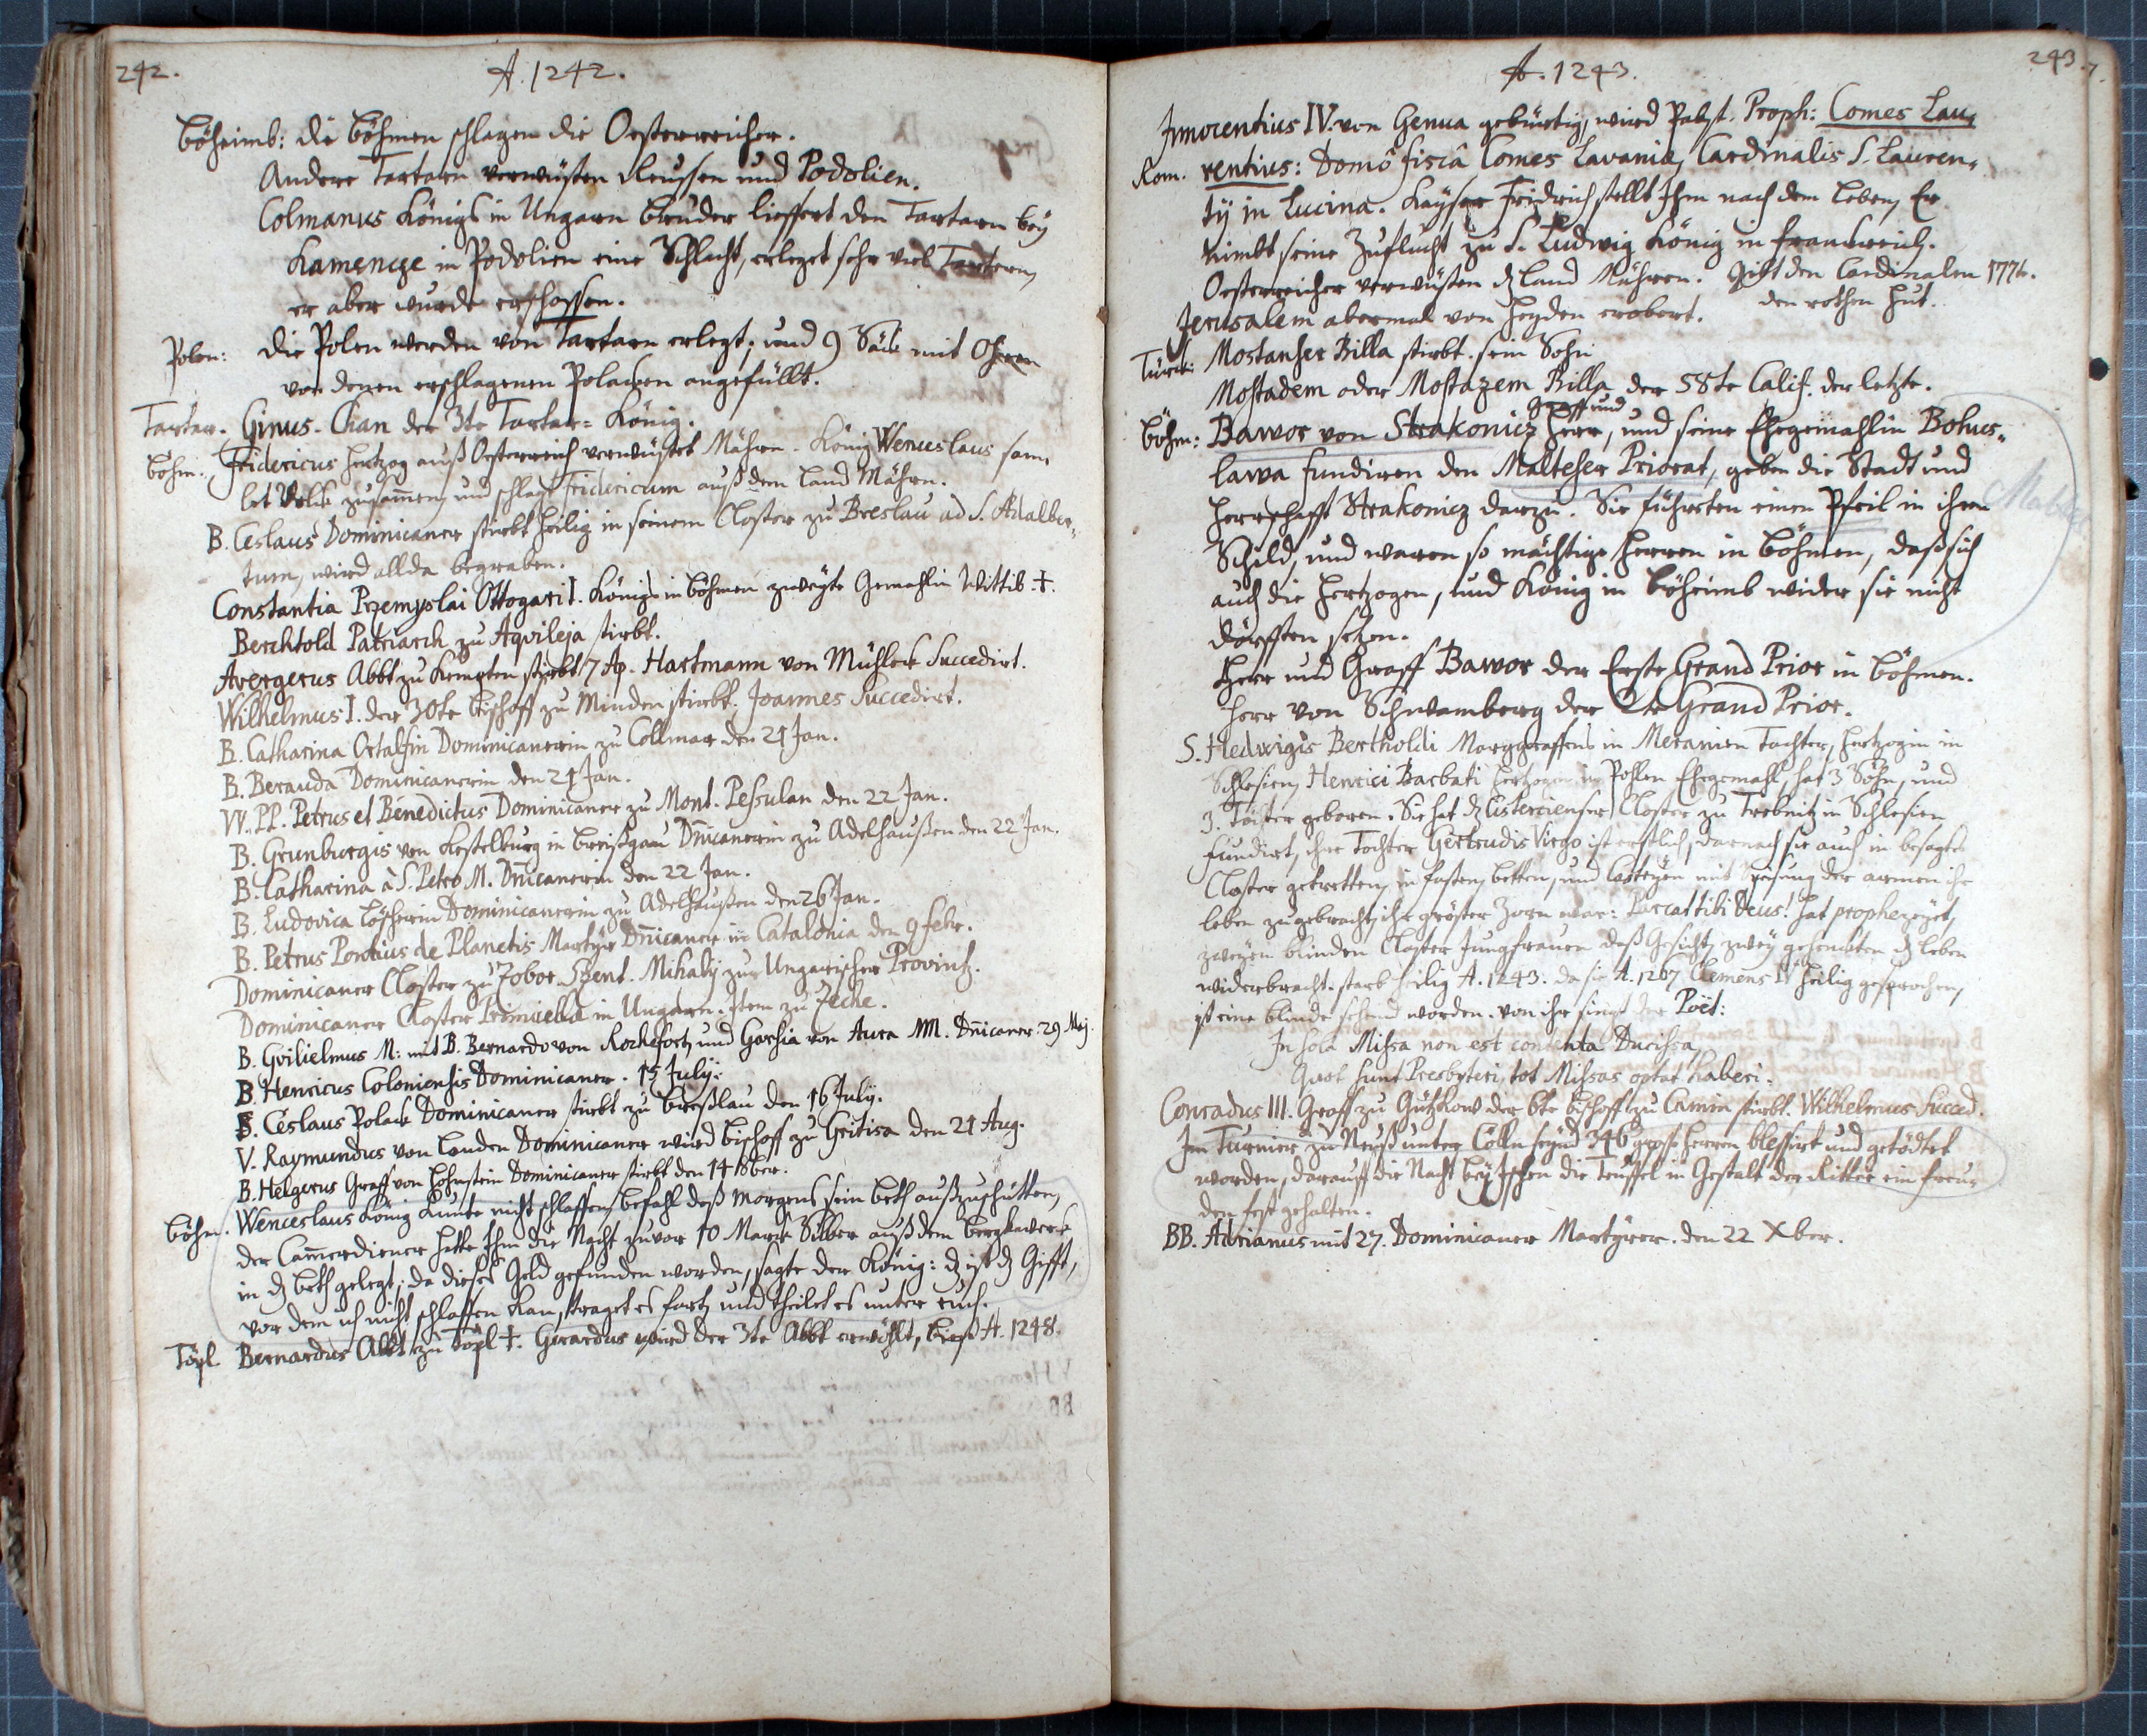 242.
A. 1242.
Böheimb: die Böhmen schlagen die Oesterreicher.
Andere Tartarn verwüsten Reussen und Podolien.
Colmanus Königs in Ungarn Bruder lieffert den Tartarn beÿ
Kamencze in Podolien eine Schlacht, erleget sehr viel Tartern,
er aber wurde erschossen.
Polen: die Polen werden von Tartarn erlegt, und 9 Säck mit Ohren
von denen erschlagenen Polacken angefüllt.
Tartar. Ginus-Chan der 3te Tartar-König.
Böhm. Fridericus Hertzog auß Oesterreich verwüstet Mähren. König Wenceslaus sam-
let Volck zusammen, und schlagt Fridericum auß dem Land Mähren.
B. Ceslaus Dominicaner stirbt heilig in seinem Closter zu Breslau ad S. Adalber-
tum, wird allda begraben.
Constantia Przemyslai Ottogari I. Königs in Böhmen zweÿte Gemahlin Wittib. †.
Berchtold Patriarch zu Aqvileja stirbt.
Avergerus Abbt zu Kempten stirbt 7 Ap. Hartmann von Mühleck Succedirt.
Wilhelmus I. der 30te Bischoff zu Minden stirbt. Joannes Succedirt.
B. Catharina Ortalfin Dominicanerin zu Collmar den 21 Jan.
B. Berauda Dominicanerin den 21 Jan.
VV. PP. Petrus et Benedictus Dominicaner zu Mont-Pessulan den 22 Jan.
B. Grunburgis von Kestelburg in Breißgau Dnicanerin zu Adelhaußen den 22 Jan.
B. Catharina à S. Petro M. Dnicanerin den 22 Jan.
B. Ludovica Löscherin Dominicanerin zu Adelhaußen den 26 Jan.
B. Petrus Pontius de Planetis Martÿr Dnicaner in Catalonia den 9 Febr.
Dominicaner Closter zu Jobor Szent-Mihalÿ zur Ungarischen Provintz.
Dominicaner Closter Primicella in Ungarn. Item zu Jeche.
B. Gvilielmus M: mit B. Bernardo von Rochefort, und Garsia von Aura MM. Dnicaner. 29 Maj.
B. Henricus Coloniensis Dominicaner. 15 Julÿ.
B. Ceslaus Polack Dominicaner stirbt zu Breßlau den 16 Julÿ.
V. Raymundus von Landen Dominicaner wird Bischoff zu Gritisa den 21 Aug.
B. Helgerus Graff von Hohnstein Dominicaner stirbt den 14 8ber.
Böhm. Wenceslaus König kunte nicht schlaffen, befahl deß Morgens sein Beth außzuschütten,
der Cammerdiener hatte Ihm die Nacht zuvor 10 Marck Silber auß dem Bergkwerck
in dz Beth gelegt; da dieses Geld gefunden worden, sagte der König: dz ist dz Gifft,
vor dem ich nicht schlaffen kan, traget es fort, und theilet es unter euch.
Töpl Bernardus Abbt zu Töpl †. Gerardus wird der 3te Abbt erwöhlt, bieß A. 1248.
243.
A. 1243.
Innocentius IV. von Genua gebürtig, wird Pabst. Proph: Comes Lau-
Rom. rentius: Domô fiscâ Comes Lavaniæ, Cardinalis S. Lauren-
tÿ in Lucina. Kaÿser Fridrich stellt Ihm nach dem Leben, Er
nimbt seine Zuflucht zu S. Ludwig König in Franckreich.
Oesterreicher verwüsten dz Land Mähren. Gibt den Cardinalen
den rothen Hut.
Jerusalem abermal von Heÿden erobert.
Türck: Mostanser Billa stirbt. sein Sohn
Mostadem oder Mostazem Billa der 58te Calif. der letzte.
Graff und
Böhm: Bawor von Strakonicz Herr, und seine Ehegemahlin Bohus-
lawa fundiren den Malteser Priorat, geben die Stadt und
Herrschafft Strakonicz darzu. Sie führeten einen Pfeil in ihrem
Schild, und waren so mächtige Herren in Böhmen, daß sich
auch die Hertzogen, und König in Böheimb wider sie nicht
dörfften setzen.
Herr und Graff Bawor der Erste Grand Prior in Böhmen.
Herr von Schwamberg der 2te Grand Prior.
S. Hedwigis Bertholdi Marggraffens in Meranien Tochter, Hertzogin in
Schlesien, Henrici Barbati Hertzogen in Pohlen Ehegemahl, hat 3 Söhn, und
3. Töchter geboren. Sie hat dz Cistercienser Closter zu Trebnitz in Schlesien
fundirt, ihre Tochter Gertrudis Virgo ist erstlich, darnach sie auch in besagtes
Closter getretten, in fasten, betten, und Casteÿen mit Speisung der armen ihr
leben zugebracht, ihr gröster Zorn war: Parcat tibi Deus! hat prophezeÿet,
zweÿen blinden Closter Jungfrauen deß Gesicht, zweÿ gehenckten dz leben
widerbracht. starb heilig A. 1243. da sie A. 1267 Clemens IV heilig gesprochen,
ist eine blinde sehend worden. von ihr singt der Poët:
In sola Missa non est contenta Ducissa,
Quot sunt Presbyteri, tot Missas optat haberi.
Conradus III. Graff zu Gützkow der 6te Bischoff zu Camin stirbt. Wilhelmus Succed.
Im Turnier zu Neuß unter Cölln seÿnd 346 grosse Herren blessirt und getödtet
worden, darauff die Nacht beÿ die Teuffel in Gestalt der Ritter ein freu-
den fest gehalten.
BB. Adrianus mit 27. Dominicaner Martÿrer. den 22 Xber.